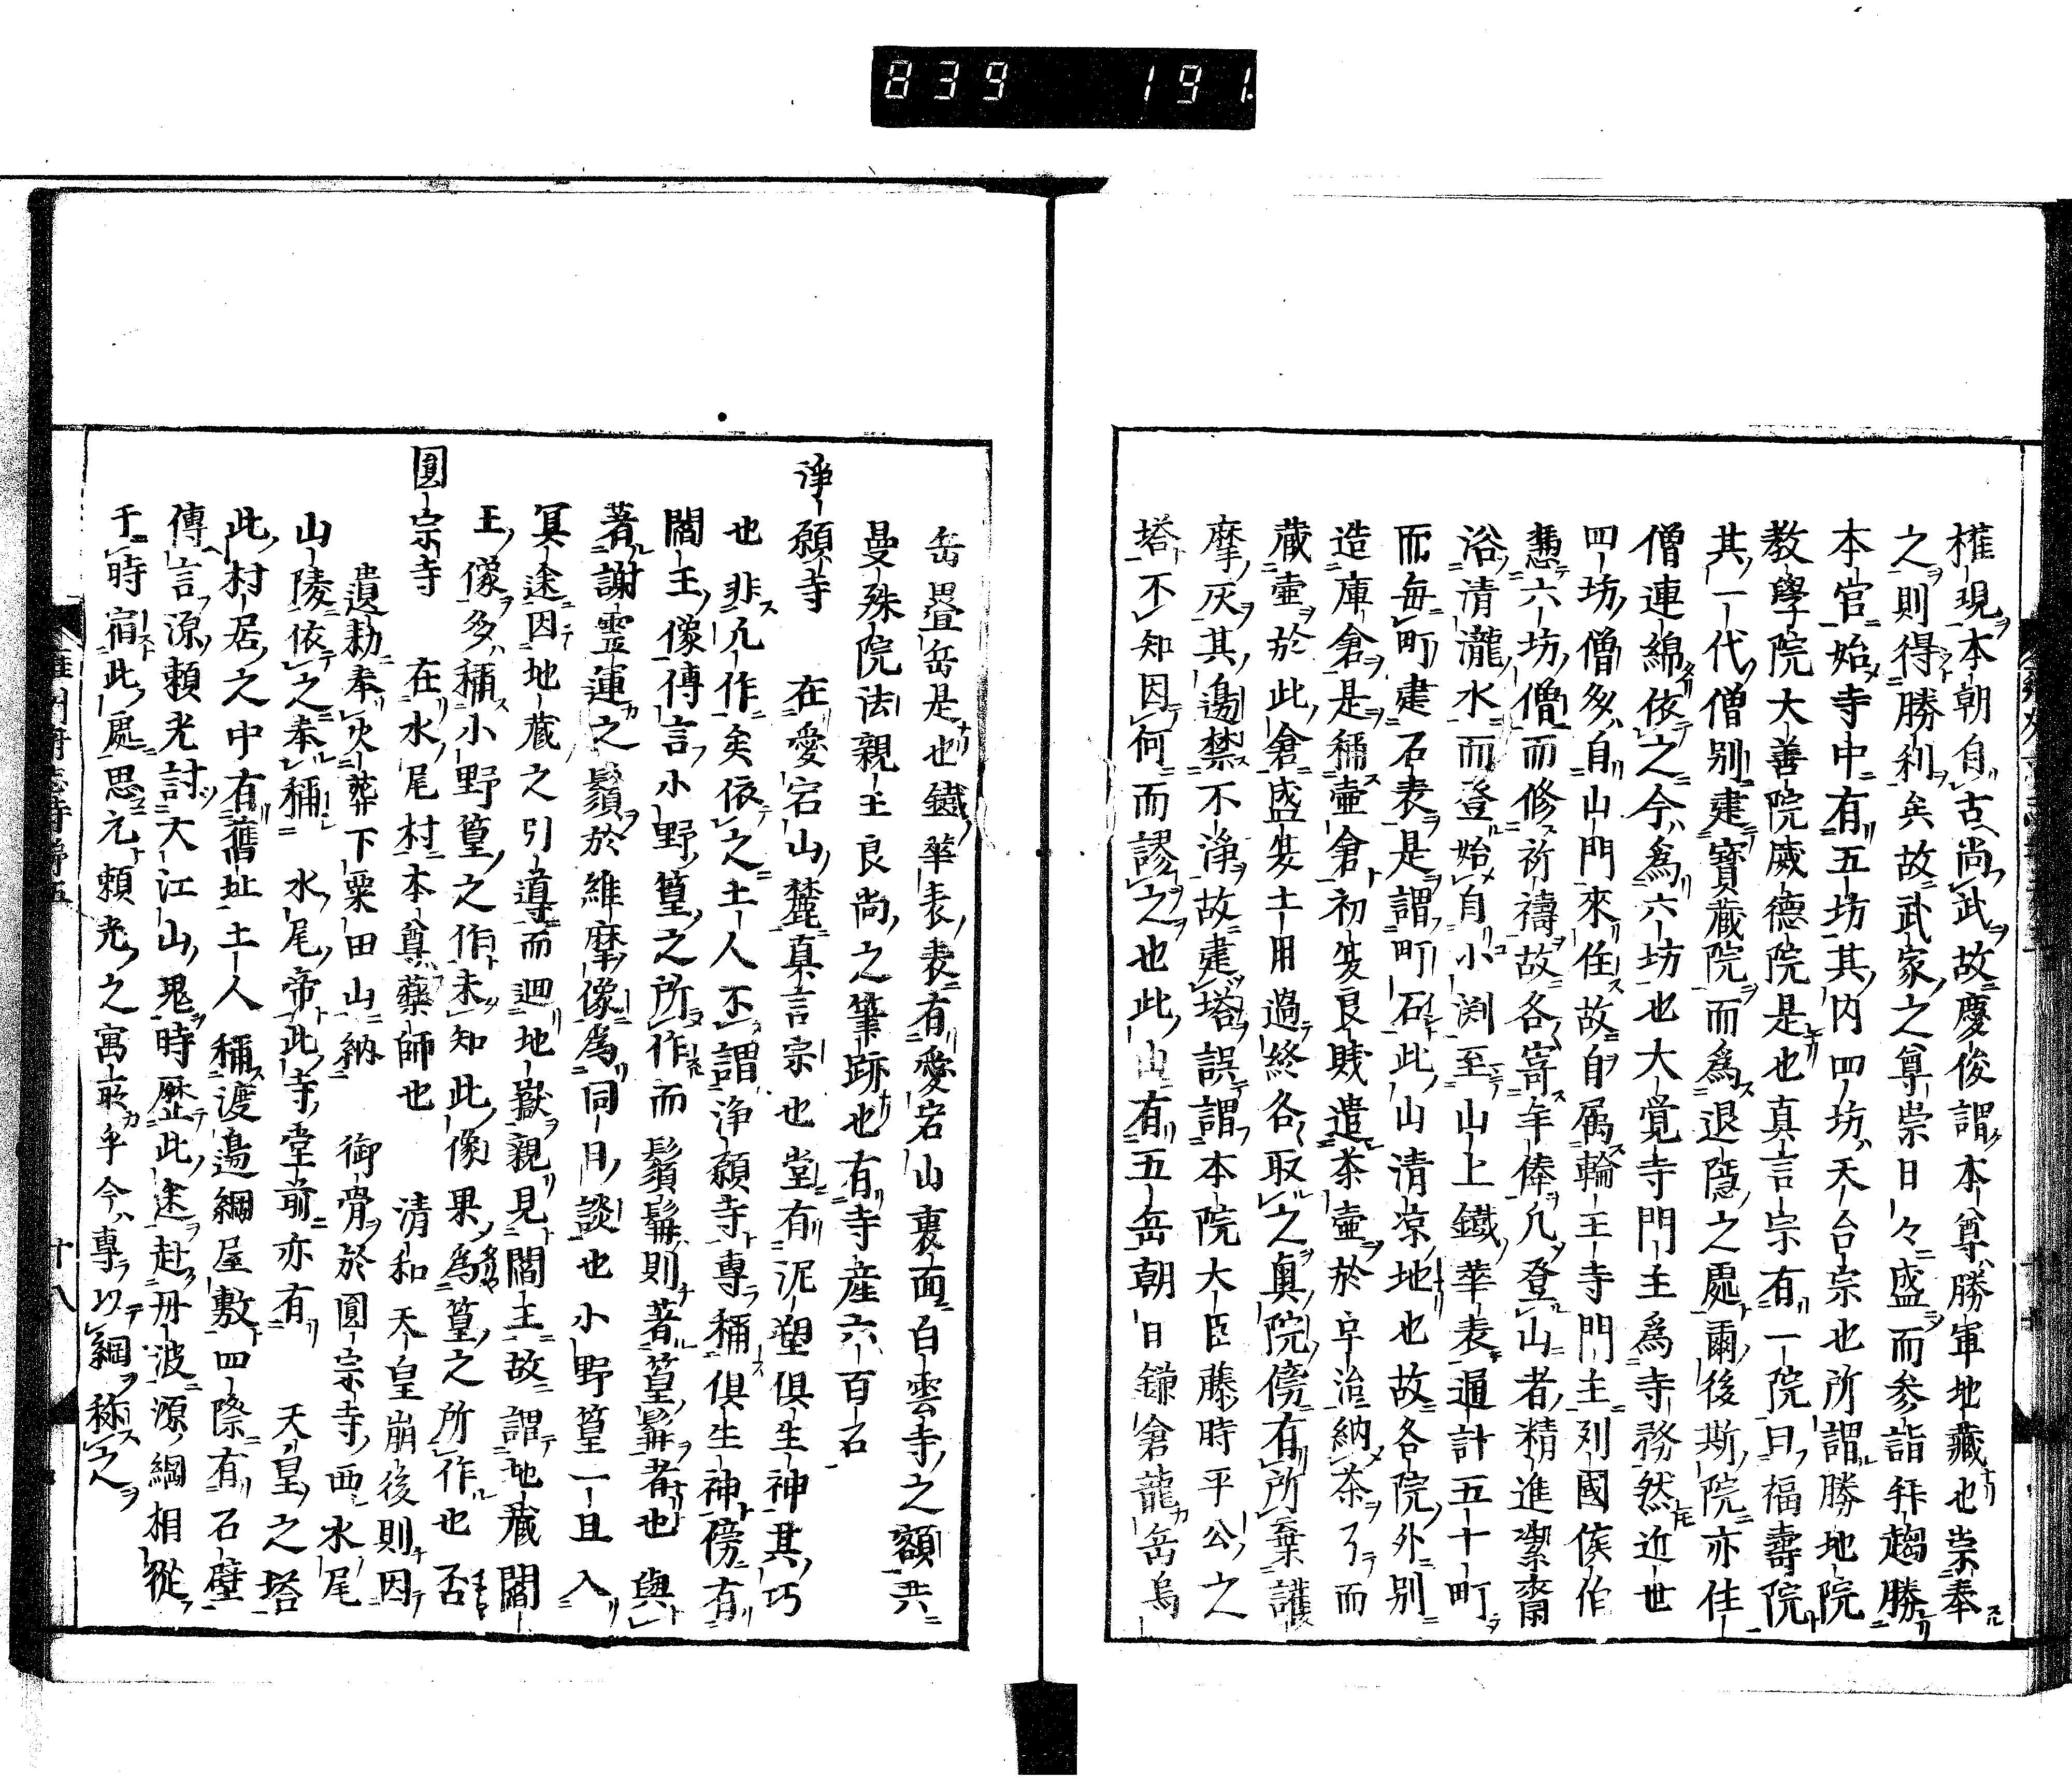 839 191
権現本朝自古尚武故慶俊謂本尊勝軍地藏也崇奉
之則得勝利矣故武家之尊崇日々盛而参詣拜趨勝
本宮始寺中有五坊其内四坊天台宗也所謂勝地院
教學院大善院威德院是也真言宗有一院曰福壽院
其一代僧別建寳藏院而爲退隱之處爾後斯院亦住
僧連綿依之今爲六坊也大覚寺門主爲寺務然近世
四坊僧多自山門來住故自属輪王寺門主列國侯伯
憑六坊僧而修祈禱故各寄年俸凡登山者精進潔齋
浴清瀧水而登始自小渕至山上鐵華表通計五十町
而毎町建石表是謂町石此山清凉地也故各院外別
造庫倉是稱壷倉初夏良賤遣茶壷於宇治納茶了而
藏壷於此倉盛夏土用過終各取之奥院傍有所棄護
摩灰其邊禁不淨故建塔誤謂本院大臣藤時平公之
塔不知因何而謬之也此山有五岳朝日鎌倉龍岳烏
岳畳岳是也鐡華表表有愛宕山裏面白雲寺之額共
曼殊院法親王良尚之筆跡也有寺産六百石
淨願寺 在愛宕山麓真言宗也堂有泥塑俱生神其巧
也非凡作矣依之土人不謂淨願寺專稱俱生神傍有
閻王像傳言小野篁之所作而鬚髯則著篁髯者也與
著謝霊運之鬚於維摩像爲同日談也小野篁一旦入
冥途因地藏之引導而廻地獄親見閻王故謂地藏閻
王像多稱小野篁之作未知此像果爲篁之所作也否
圓宗寺 在水尾村本尊藥師也 清和天皇崩後則因
遺勅奉火葬下粟田山納 御骨於圓宗寺西水尾
山陵依之奉稱 水尾帝此寺堂前亦有 天皇之塔
此村居之中有舊址土人稱渡邊綱屋敷四際有石壁
傳言源頼光討大江山鬼時歴此途赴丹波源綱相從
于時宿此處思元頼光之寓㪽乎今專以綱称之
雍州府志寺第五 十八